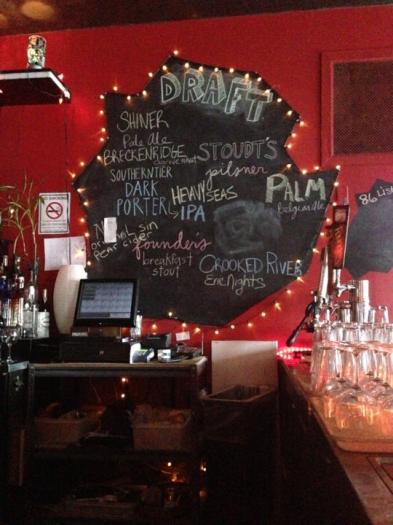 DRAFT
SHINER
Pale Ale
BRECKENRIDGE
STOUDT'S
pilsner
SOUTHERNTIER
DARK
PORTER
HEAVY
SEAS
IPA
PALM
belgian ale
original sin
pear cider
founder's
breakfast
stout
CROOKED RIVER
Erie Nights
86 List